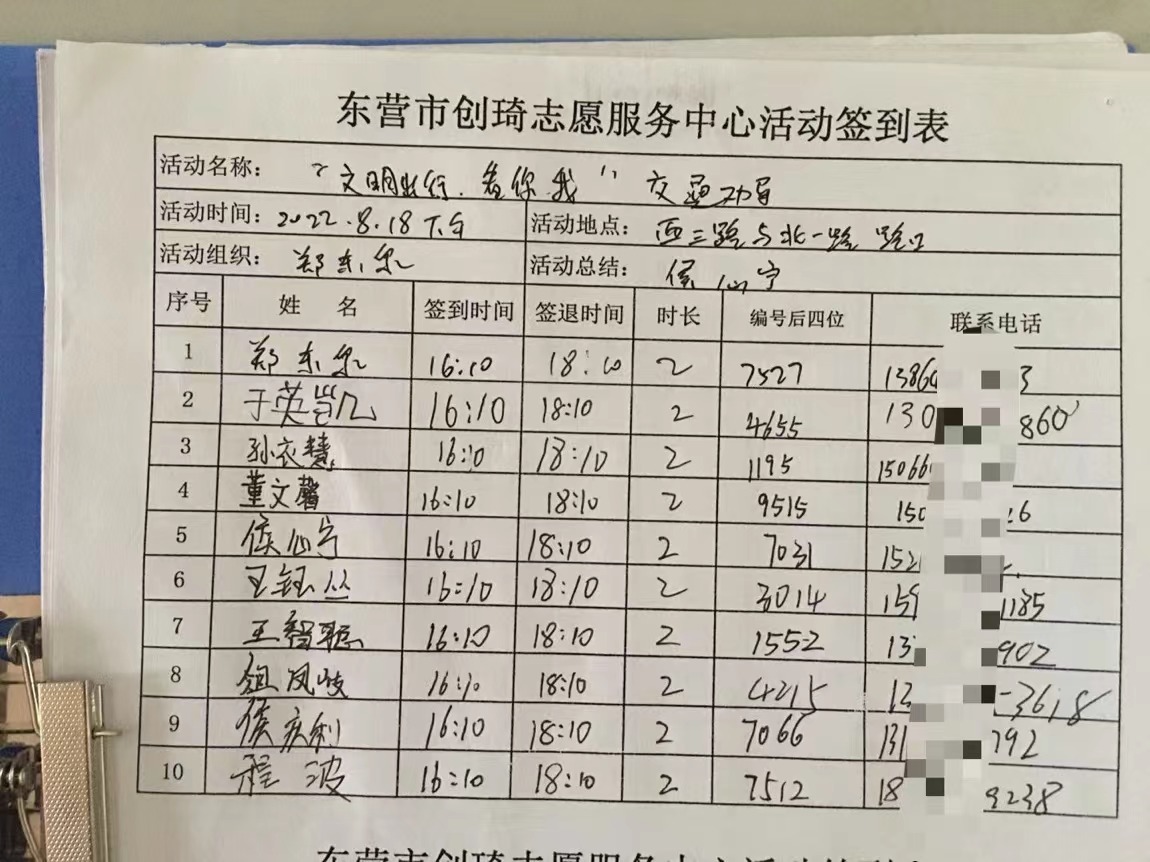 东营市创琦志愿服务中心活动签到表
活动名称： “文明出行，有你我” 交通劝导
活动时间：2022.8.18下午 活动地点：西三路与北一路 路口
活动组织： 郑东 活动总结： 侯仙宁
序号 姓 名 签到时间 签退时间 时长 编号后四位 联系电话
1 郑东 16:10 18:10 2 7527 13864 3
2 于英 16:10 18:10 2 4655 130 860
3 孙衣慧 16:10 18:10 2 1195 15066
4 董文馨 16:10 18:10 2 9515 150 26
5 侯仙宁 16:10 18:10 2 7031 152
6 王钰丛 16:10 18:10 2 3014 159 1185
7 王智聪 16:10 18:10 2 1552 13 902
8 凤岐 16:10 18:10 2 4215 3618
9 侯庆利 16:10 18:10 2 7066 131 792
10 程波 16:10 18:10 2 7512 18 9238
东营市创琦志愿服务中心活动签到